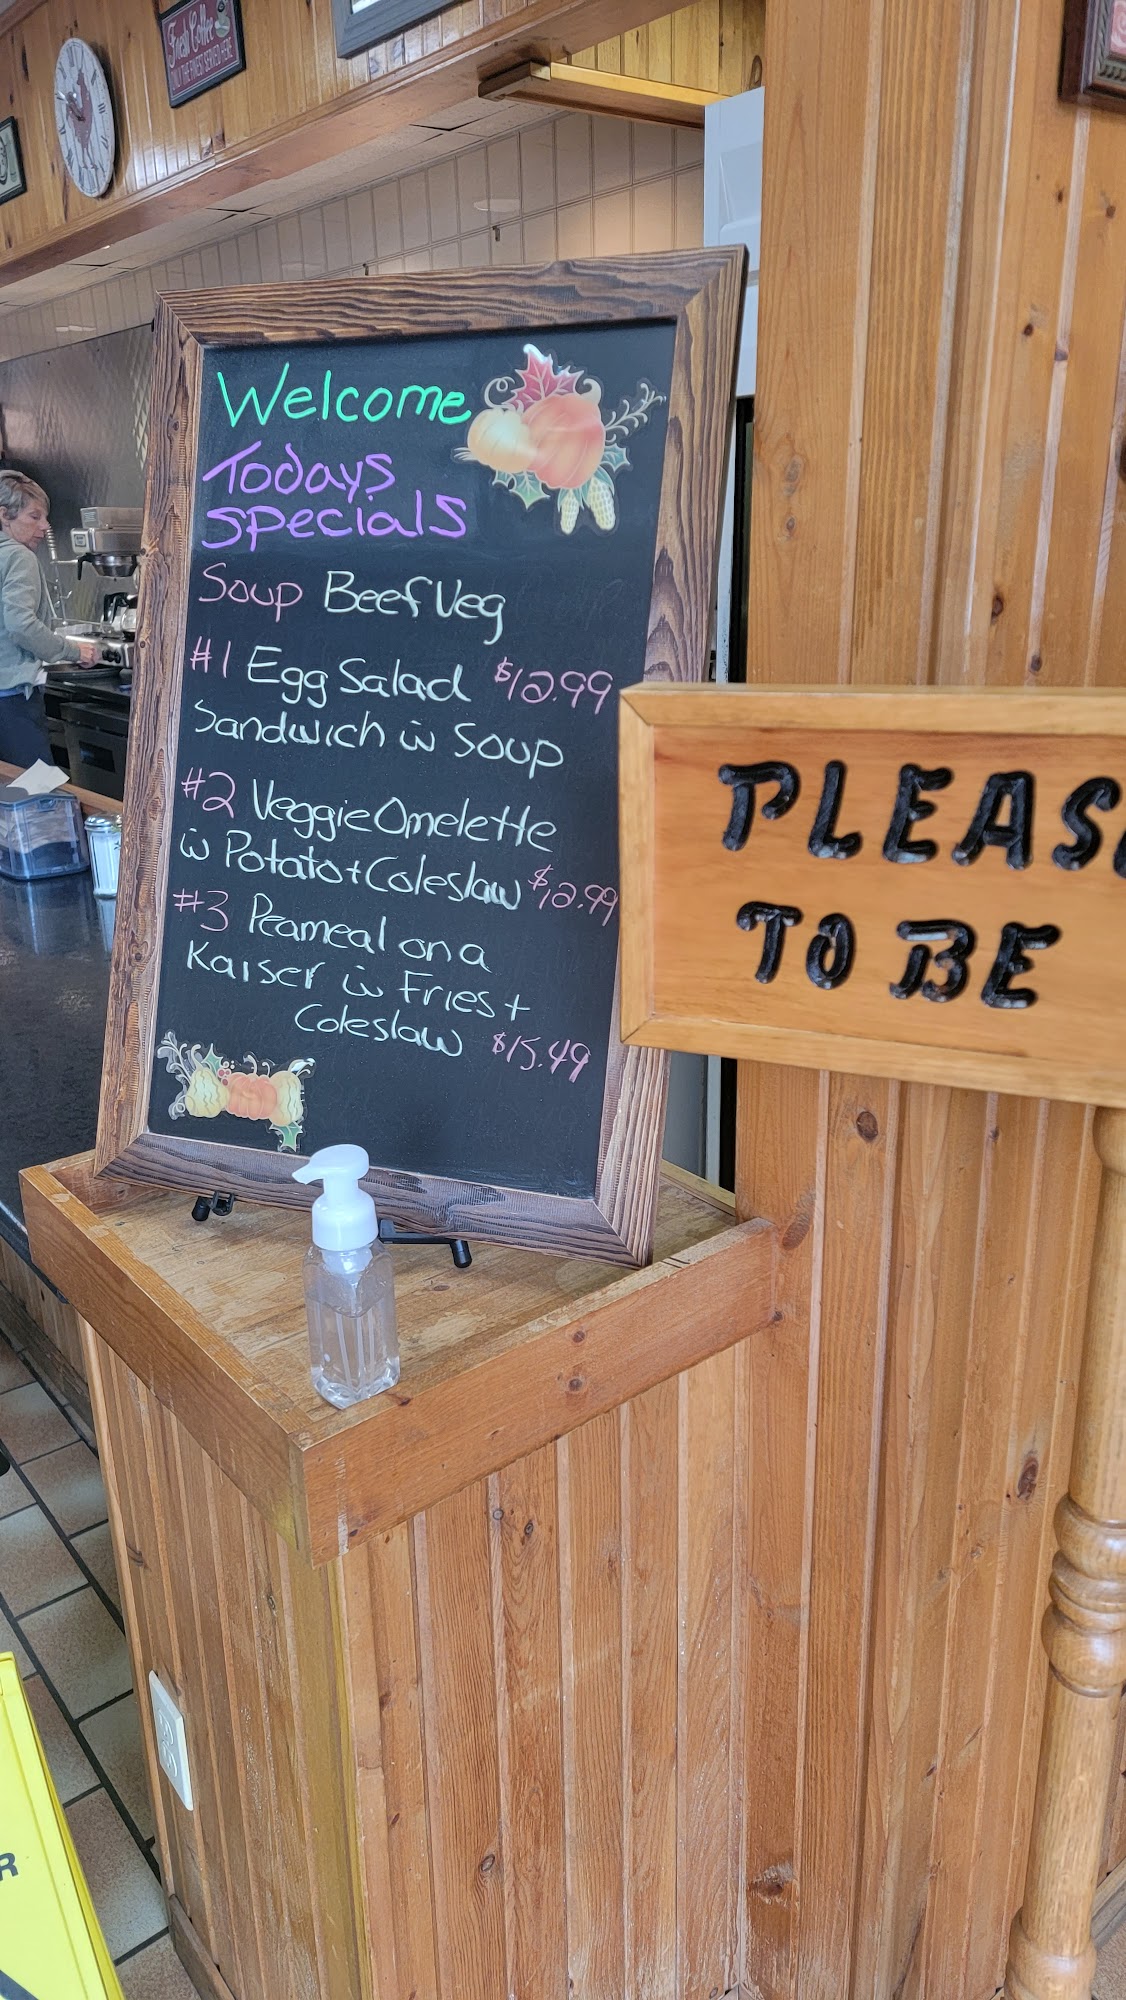 Fresh Coffee
ONLY THE FINEST SERVED HERE
Welcome
Todays
Specials
Soup Beef Veg
#1 Egg Salad $12.99
Sandwich w Soup
#2 Veggie Omelette
w Potato + Coleslaw $12.99
#3 Peameal on a
Kaiser w Fries +
Coleslaw $15.49
PLEAS
TO BE
R